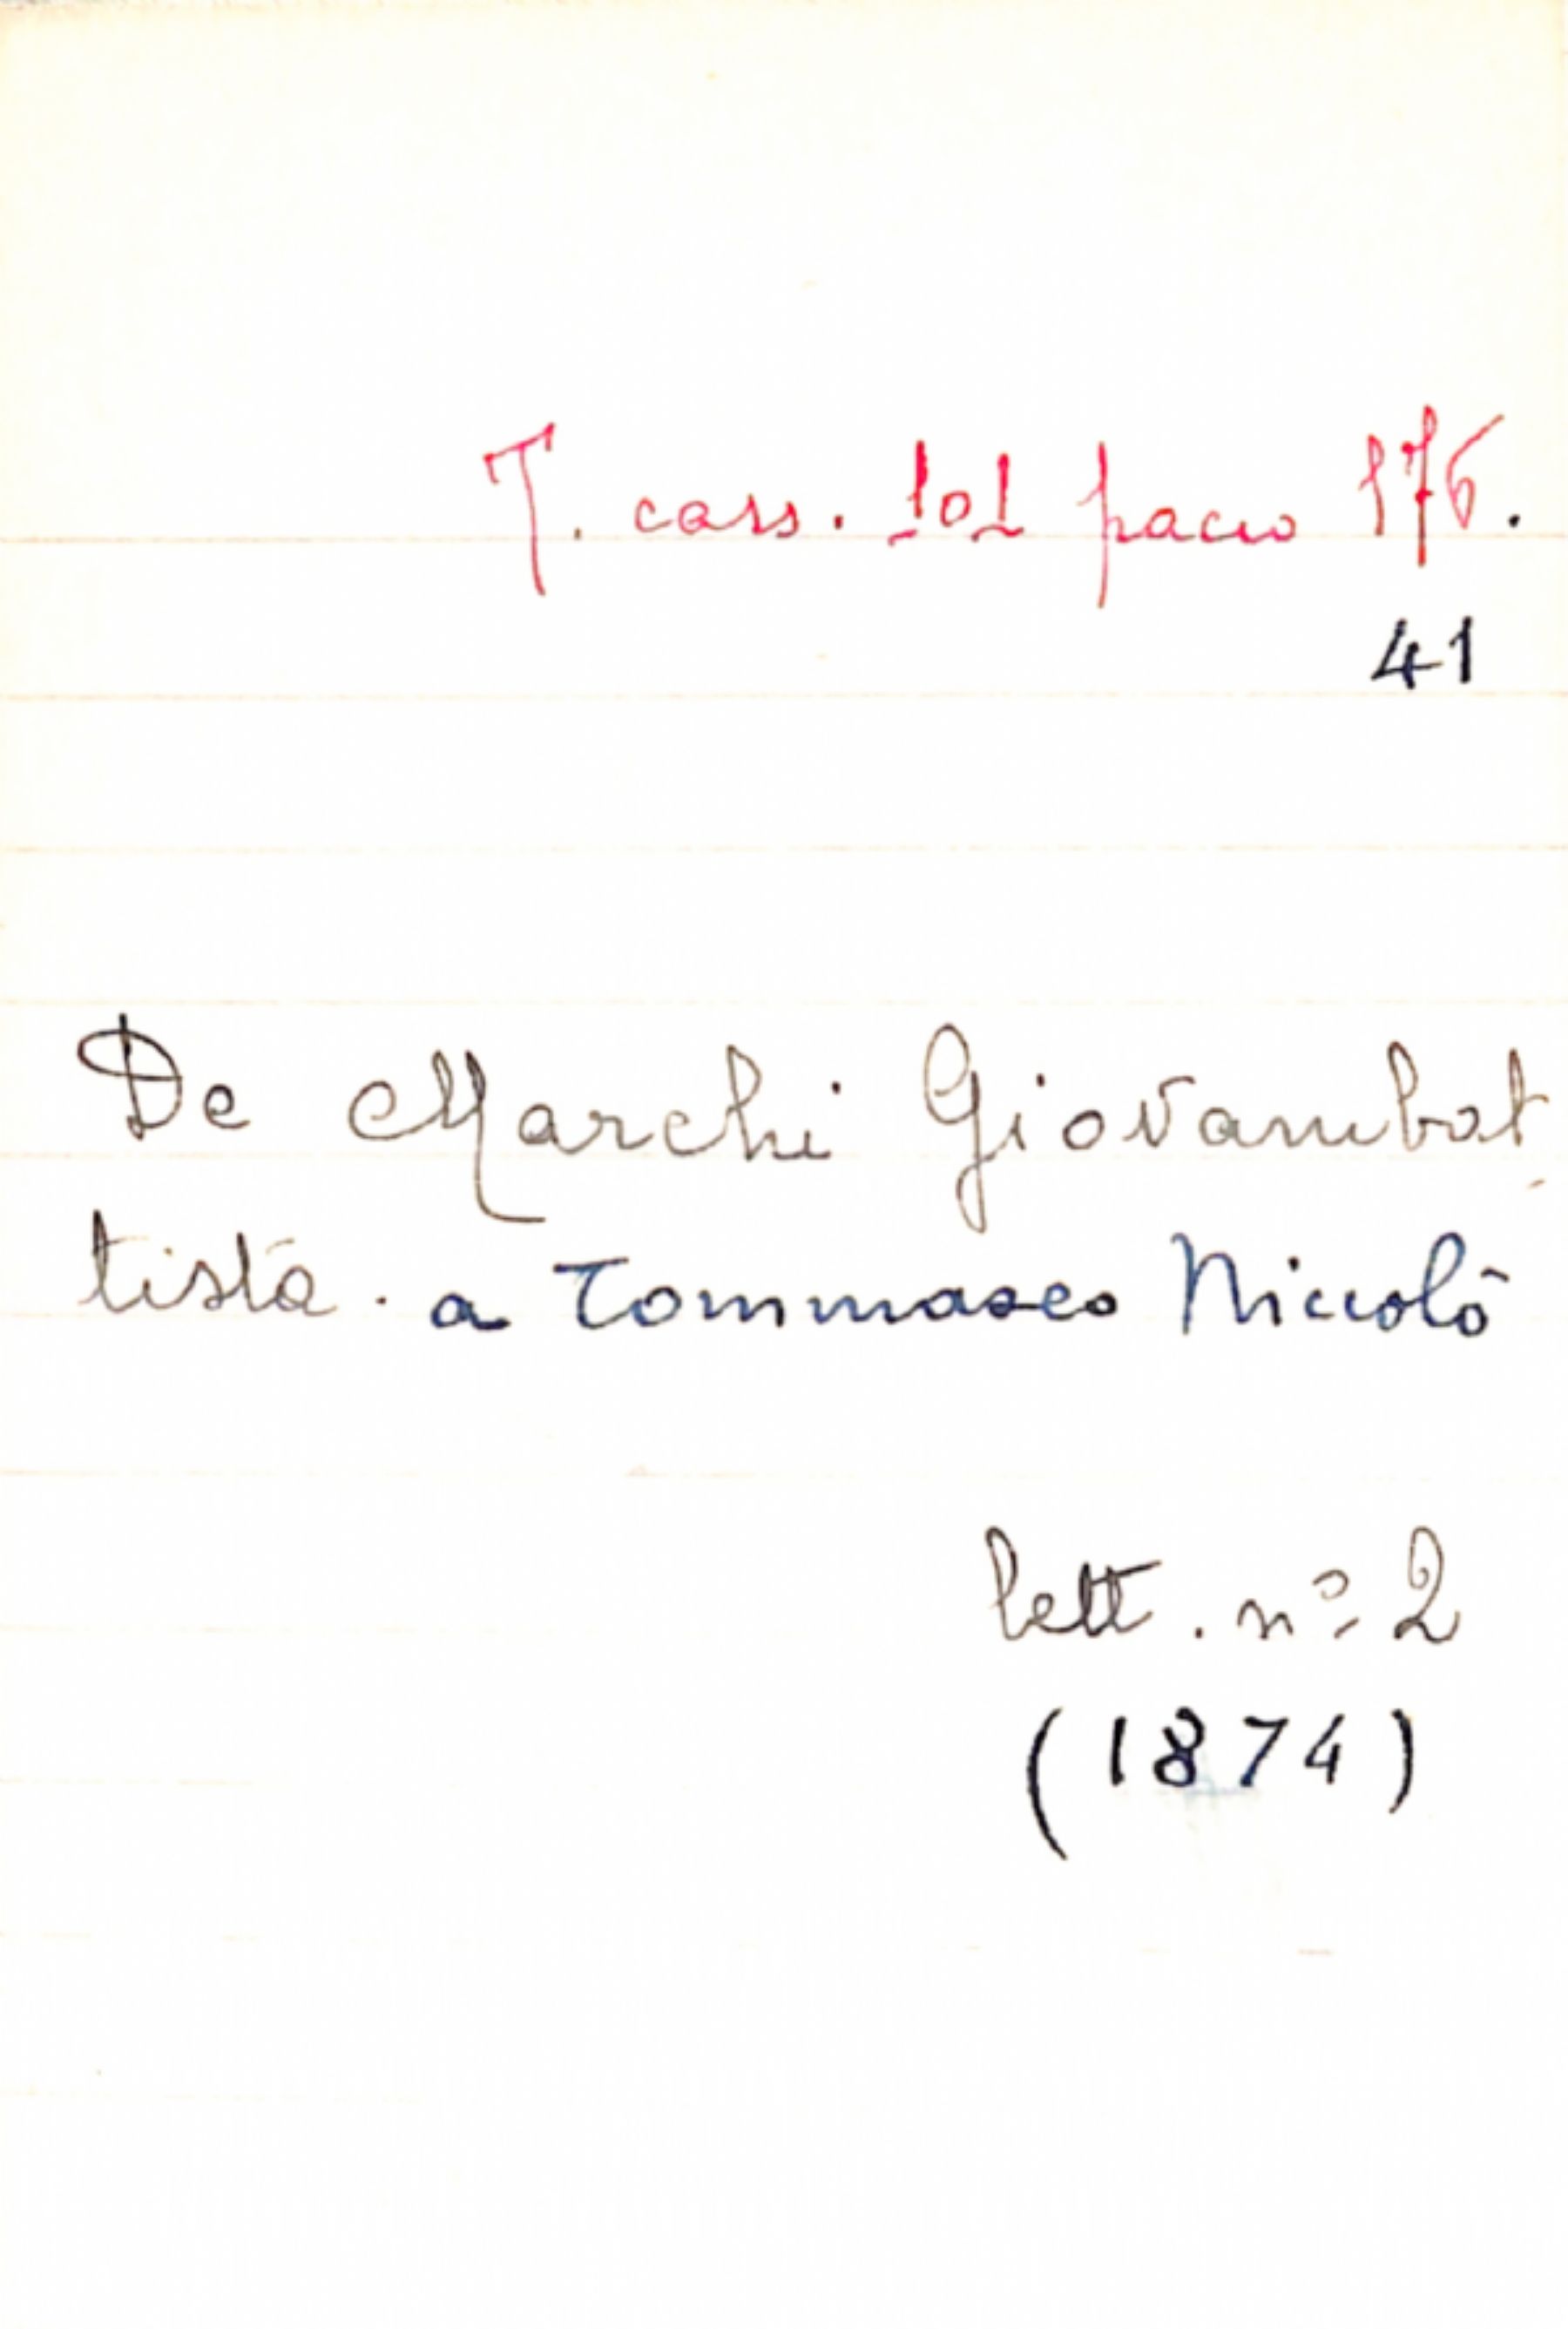 T. cass. 101 pacco 176.
41
De Marchi Giovambat-
tista. a Tommaseo Niccolò
lett. nº 2
(1874)